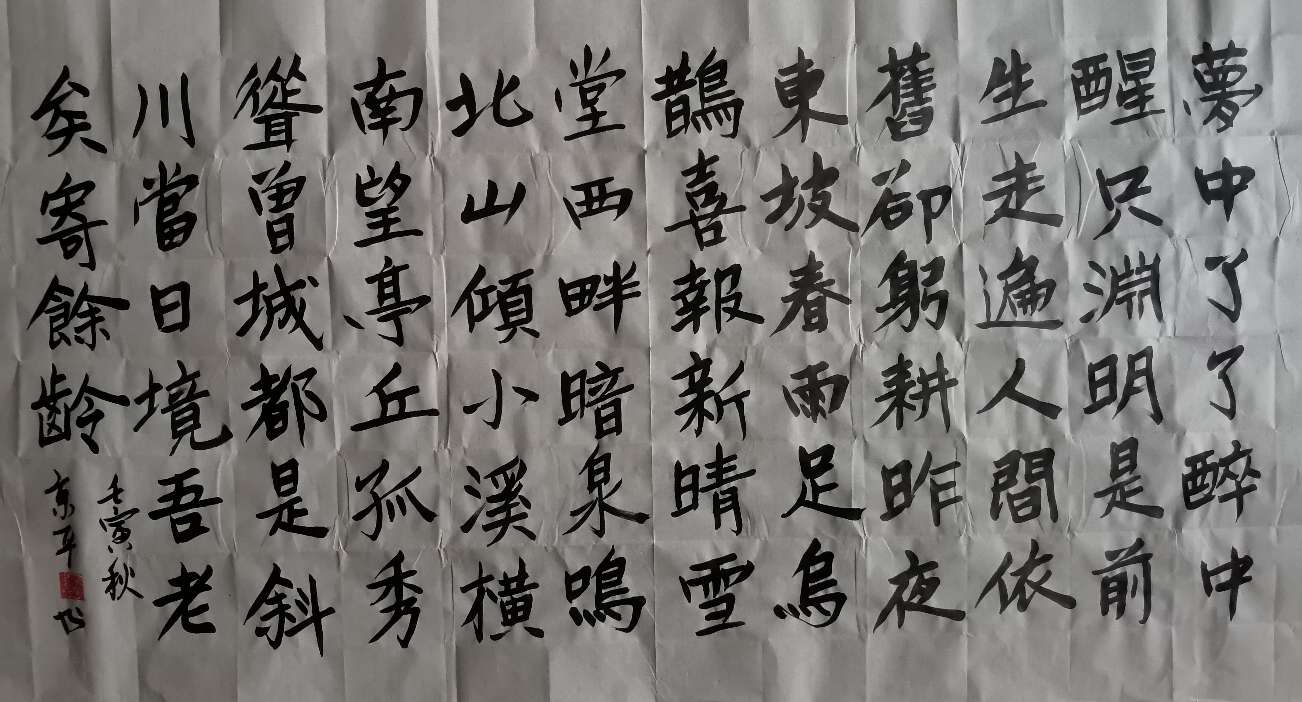 夢中了了醉中
醒只淵明是前
生走遍人間依
舊卻躬耕昨夜
東坡春雨足烏
鵲喜報新晴雪
堂西畔暗泉鳴
北山傾小溪橫
南望亭丘孤秀
聳曾城都是斜
川當日境吾老
矣寄餘齡
壬寅秋
京平